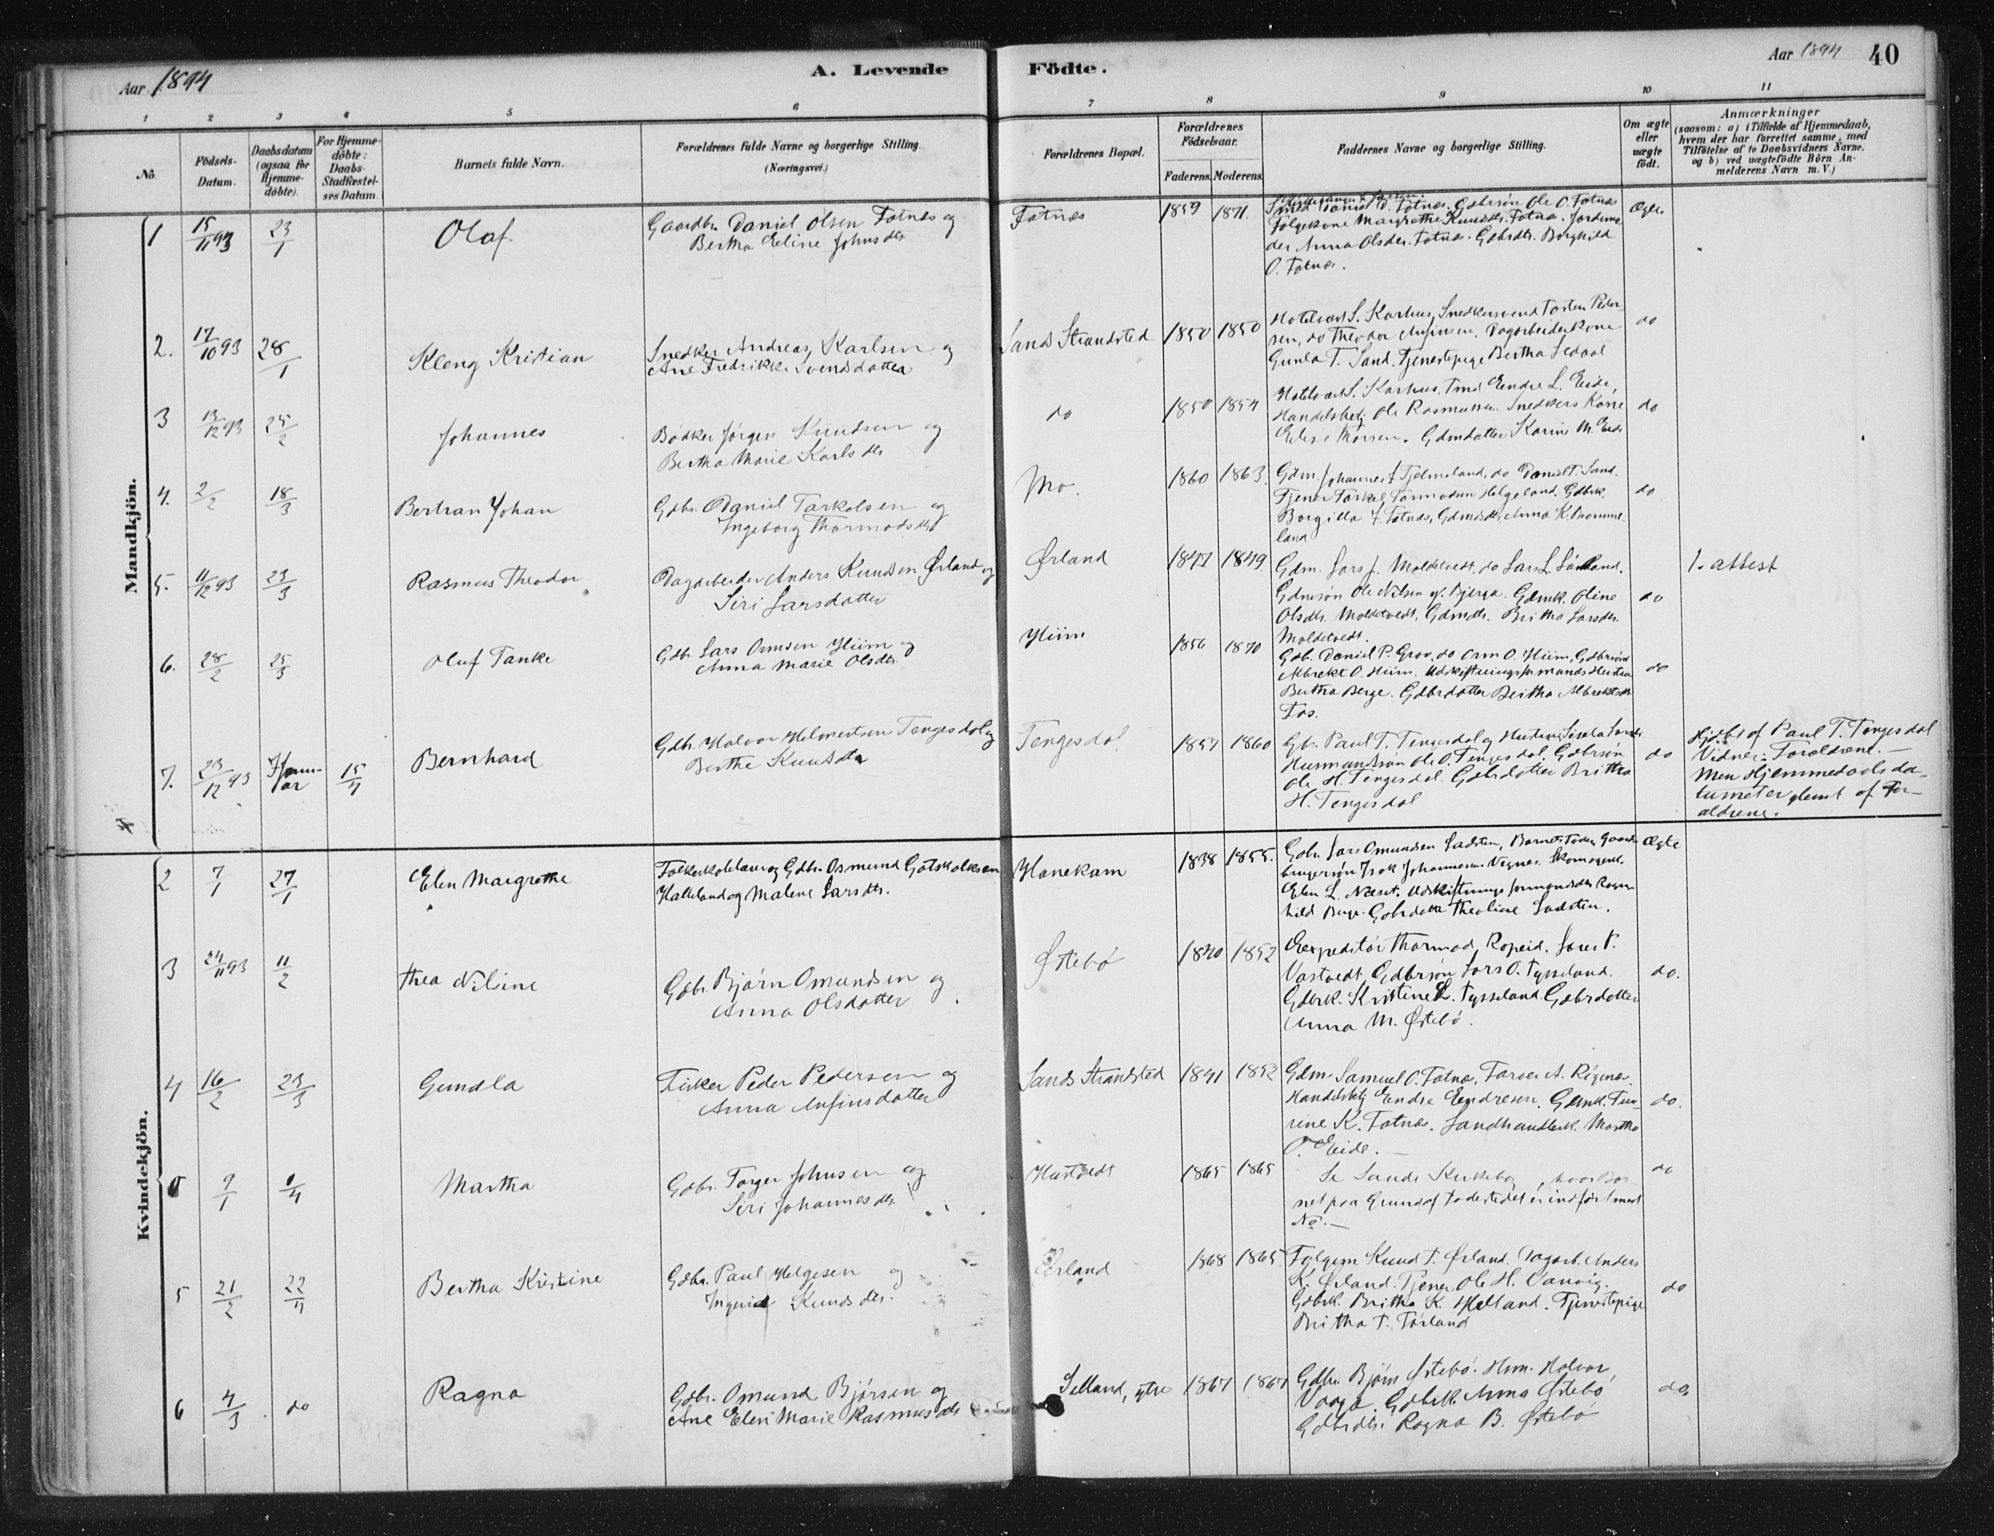 Aar 1894
A. Levende Födte.
Aar 1894 40
1 2 3 4 5 6 7 8 9 10 11
No.
Födsels-Datum.
Daabsdatum (ogsaa for Hjemme-döbte).
For Hjemme-döbte: Daabs-Stadfæstel-ses Datum.
Barnets fulde Navn.
Forældrenes fulde Navne og borgerlige Stilling. (Næringsvei.)
Forældrenes Bopæl.
Forældrenes Födselsaar.
Faderens. Moderens.
Faddernes Navne og borgerlige Stilling.
Om ægte eller uægte födt.
Anmærkninger
(saasom: a) i Tilfælde af Hjemmedaab,
hvem der har forrettet samme, med
Tilföielse af to Daabsvidners Navne,
og b) ved uægtefödte Börn An-
melderens Navn m. V.)
Mandkjön.
1 15/11 93 23/1 Olaf
Gaardbr. Daniel Olsen Fatnes og
Bertha Eline Johnsdtr
Fatnes 1859 1871
O. Fatnes. Gdbrsøn Ole O. Fatnes
Følgekone Margrethe Knudsdtr. Fatnes. Jordemo-
der Anna Olsdtr. Fatnes. Gdbrdtr. Borghild
O. Fatnes.
Ægte
2. 17/10 93 28/1 Kleng Kristian
Snedker Andreas Karlsen og
Ane Fredrikke Svendsdatter
Sands Strandsted 1850 1850
Hotelvært S. Karhus, Snedkersvend Torsten Peder-
sen, do Theodor Ansinsen. Dagarbeiderkone
Gunla T. Sand. Tjenestepige Bertha Sedaal
do
3 13/12 93 25/2 Johannes
Bødker Jørgen Knudsen og
Bertha Marie Karlsdtr
do 1850 1854
Hotelvært S. Karhus. Tmd. Endre L. Eide,
Handelsbetj. Ole Rasmussen. Snedkers Kone
Elise Thorsen. Gdmdatter Karine M. Eide
do
4. 2/2 18/3 Bertran Johan
Gdbr. Daniel Tarkelsen og
Ingeborg Thormodsdtr
Mo. 1860 1863.
Gdm. Johannes T. Tjelmeland, do Daniel T. Sand.
Tjener Tarkel Tormodsen Helgeland. Gdbrk.
Borgilla J. Fatnes, Gdmdtr. Anna K. Bromme-
land
do
5. 11/12 93 23/3 Rasmus Theodor
Dagarbeider Anders Knudsen Ørland og
Siri Larsdatter
Ørland 1847 1849
Gdm. Lars J. Moldtvedt, do Lars L. Sørland.
Gdmsøn Ole Nilsen af Bjerga. Gdmk. Oline
Olsdtr. Moldtvedt, Gdmdtr. Britha Larsdtr.
Moldtvedt.
do
1. attest
6. 28/2 25/3 Oluf Tanke
Gdbr. Lars Ormsen Hiim og
Anna Marie Olsdtr
Hiim 1856 1870
Gdb. Daniel P. Grov, do Orm O. Hiim, Gdbrsøn
Albrekt O. Hiim. Udskiftningsformands Hustru
Bertha Berge. Gdbrdatter Bertha Albrektsdtr
Fos.
do
7. 23/12 93 Janu-ar 15/4 Bernhard
Gdbr. Halvor Helmertsen Tengesdal og
Berthe Knudsdtr
Tengesdal 1857 1860
Gbr. Paul T. Tengesdal og Hustru Sisela Larsdtr
Husmandssøn Ole O. Tengesdal. Gdbrsøn
Ole H. Tengesdal. Gdbrdatter Britha
H. Tengesdal
do
Hjdbt af Paul T. Tengesdal
Vidner: Forældrene. —
Men Hjemmedaabsda-
tumet er glemt af For-
ældrene.
Kvindekjön.
2 7/1 27/1 Elen Margrethe
Folkeskolelærer og Gdbr. Osmund Gotskalksen
Halleland og Malene Larsdtr.
Hanekam 1838 1855.
Gdbr. Lars Omundsen Ladsten, Barnets Fader, Gaard-
brugersøn Isak Johannesen Vegnes. Skomagerk.
Elen L. Næset. Udskiftningsformandsdtr Ragn-
hild Berge. Gdbrdatter Theoline Ladsten.
Ægte
3 24/11 93 11/2 Thea Nilsine
Gdbr. Bjørn Omundsen og
Anna Olsdatter
Østebø 1840 1852
Expeditør Thormod Ropeid. Lærer P.
Vastvedt. Gdbrsøn Lars O. Tysseland.
Gdbrk. Kristine L. Tysseland. Gdbrdatter
Anna M. Østebø.
do.
4 16/2 23/3 Gundla
Fisker Peder Pedersen og
Anna Ansinsdatter
Sands Strandsted 1841 1852
Gdm. Samuel O. Fatnes, Farver A. Rignes.
Handelsbetj. Endre Endresen. Gdmk. Tho-
rine K. Fatnes. Landhandlerk. Martha
O. Eide. —
do.
9/1 Martha
Gdbr. Torger Johnsen og
Siri Johannesdtr.
Hustvedt 1865 1865
Se Sands Kirkebog, hvor Bar-
net paa Grund af Fødestedet er indført med
No. —
do
5 21/2 22/4 Bertha Kristine
Gdbr. Paul Helgesen og
Ingerid Knudsdtr.
Ørland 1868 1865.
Følgem. Knud T. Ørland. Dagarb. Anders
K. Ørland. Tjener Ole H. Vanvig.
Gdbrk. Britha K. Helland. Tjenestepige
Britha T. Tørland
do
6 4/3 do Ragna
Gdbr. Omund Bjørsen og
Ane Elen Marie Rasmusdtr
Selland, ytre 1867 1867
Gdbr. Bjørn Østebø. Hm. Halvor
Vaaga. Gdbrk. Anna Østebø
Gdbrdtr. Ragna B. Østebø
do.